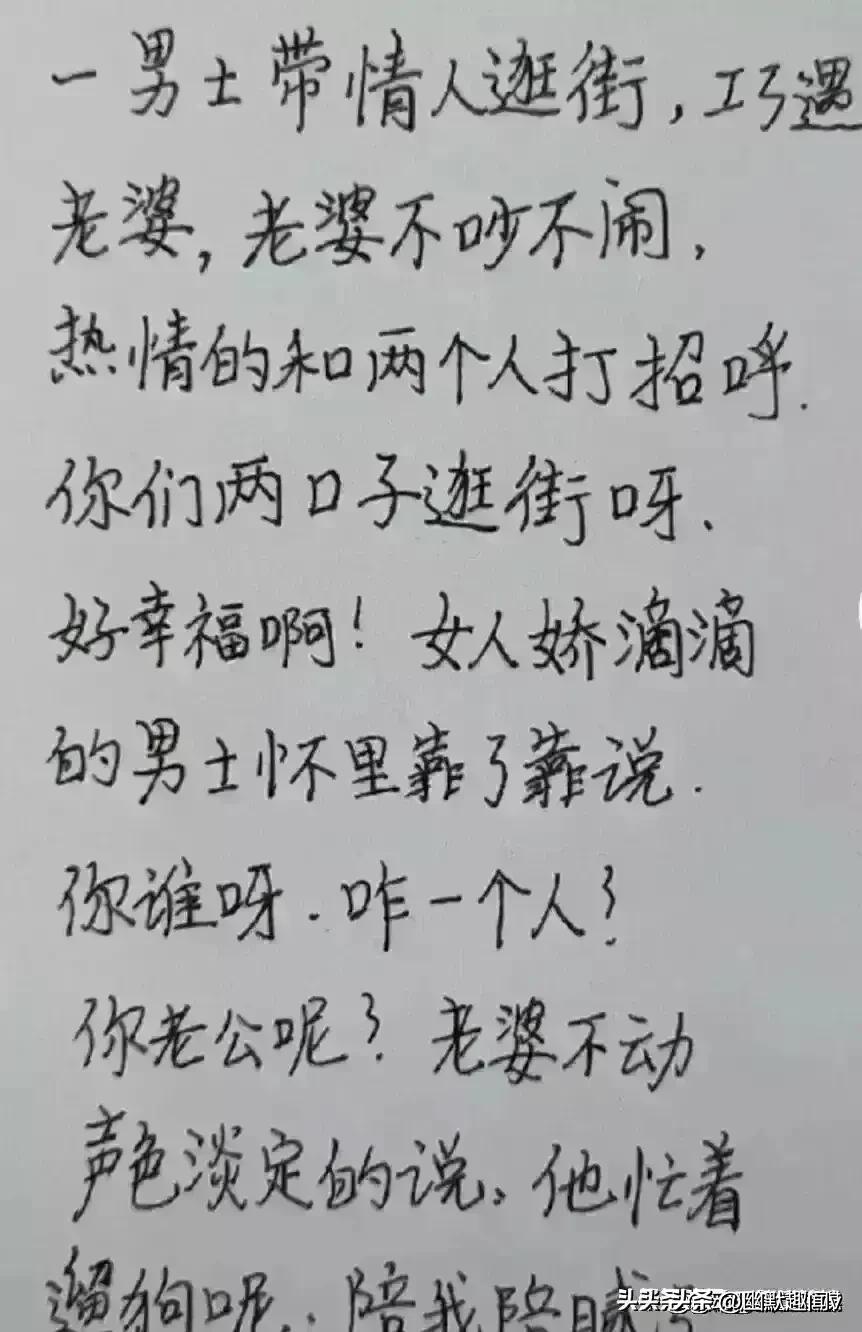 一男士带情人逛街，巧遇
老婆，老婆不吵不闹，
热情的和两个人打招呼.
你们两口子逛街呀、
好幸福啊！女人娇滴滴
的男士怀里靠了靠说.
你谁呀.咋一个人？
你老公呢？老婆不动
声色淡定的说、他忙着
遛狗呢..陪我
头条